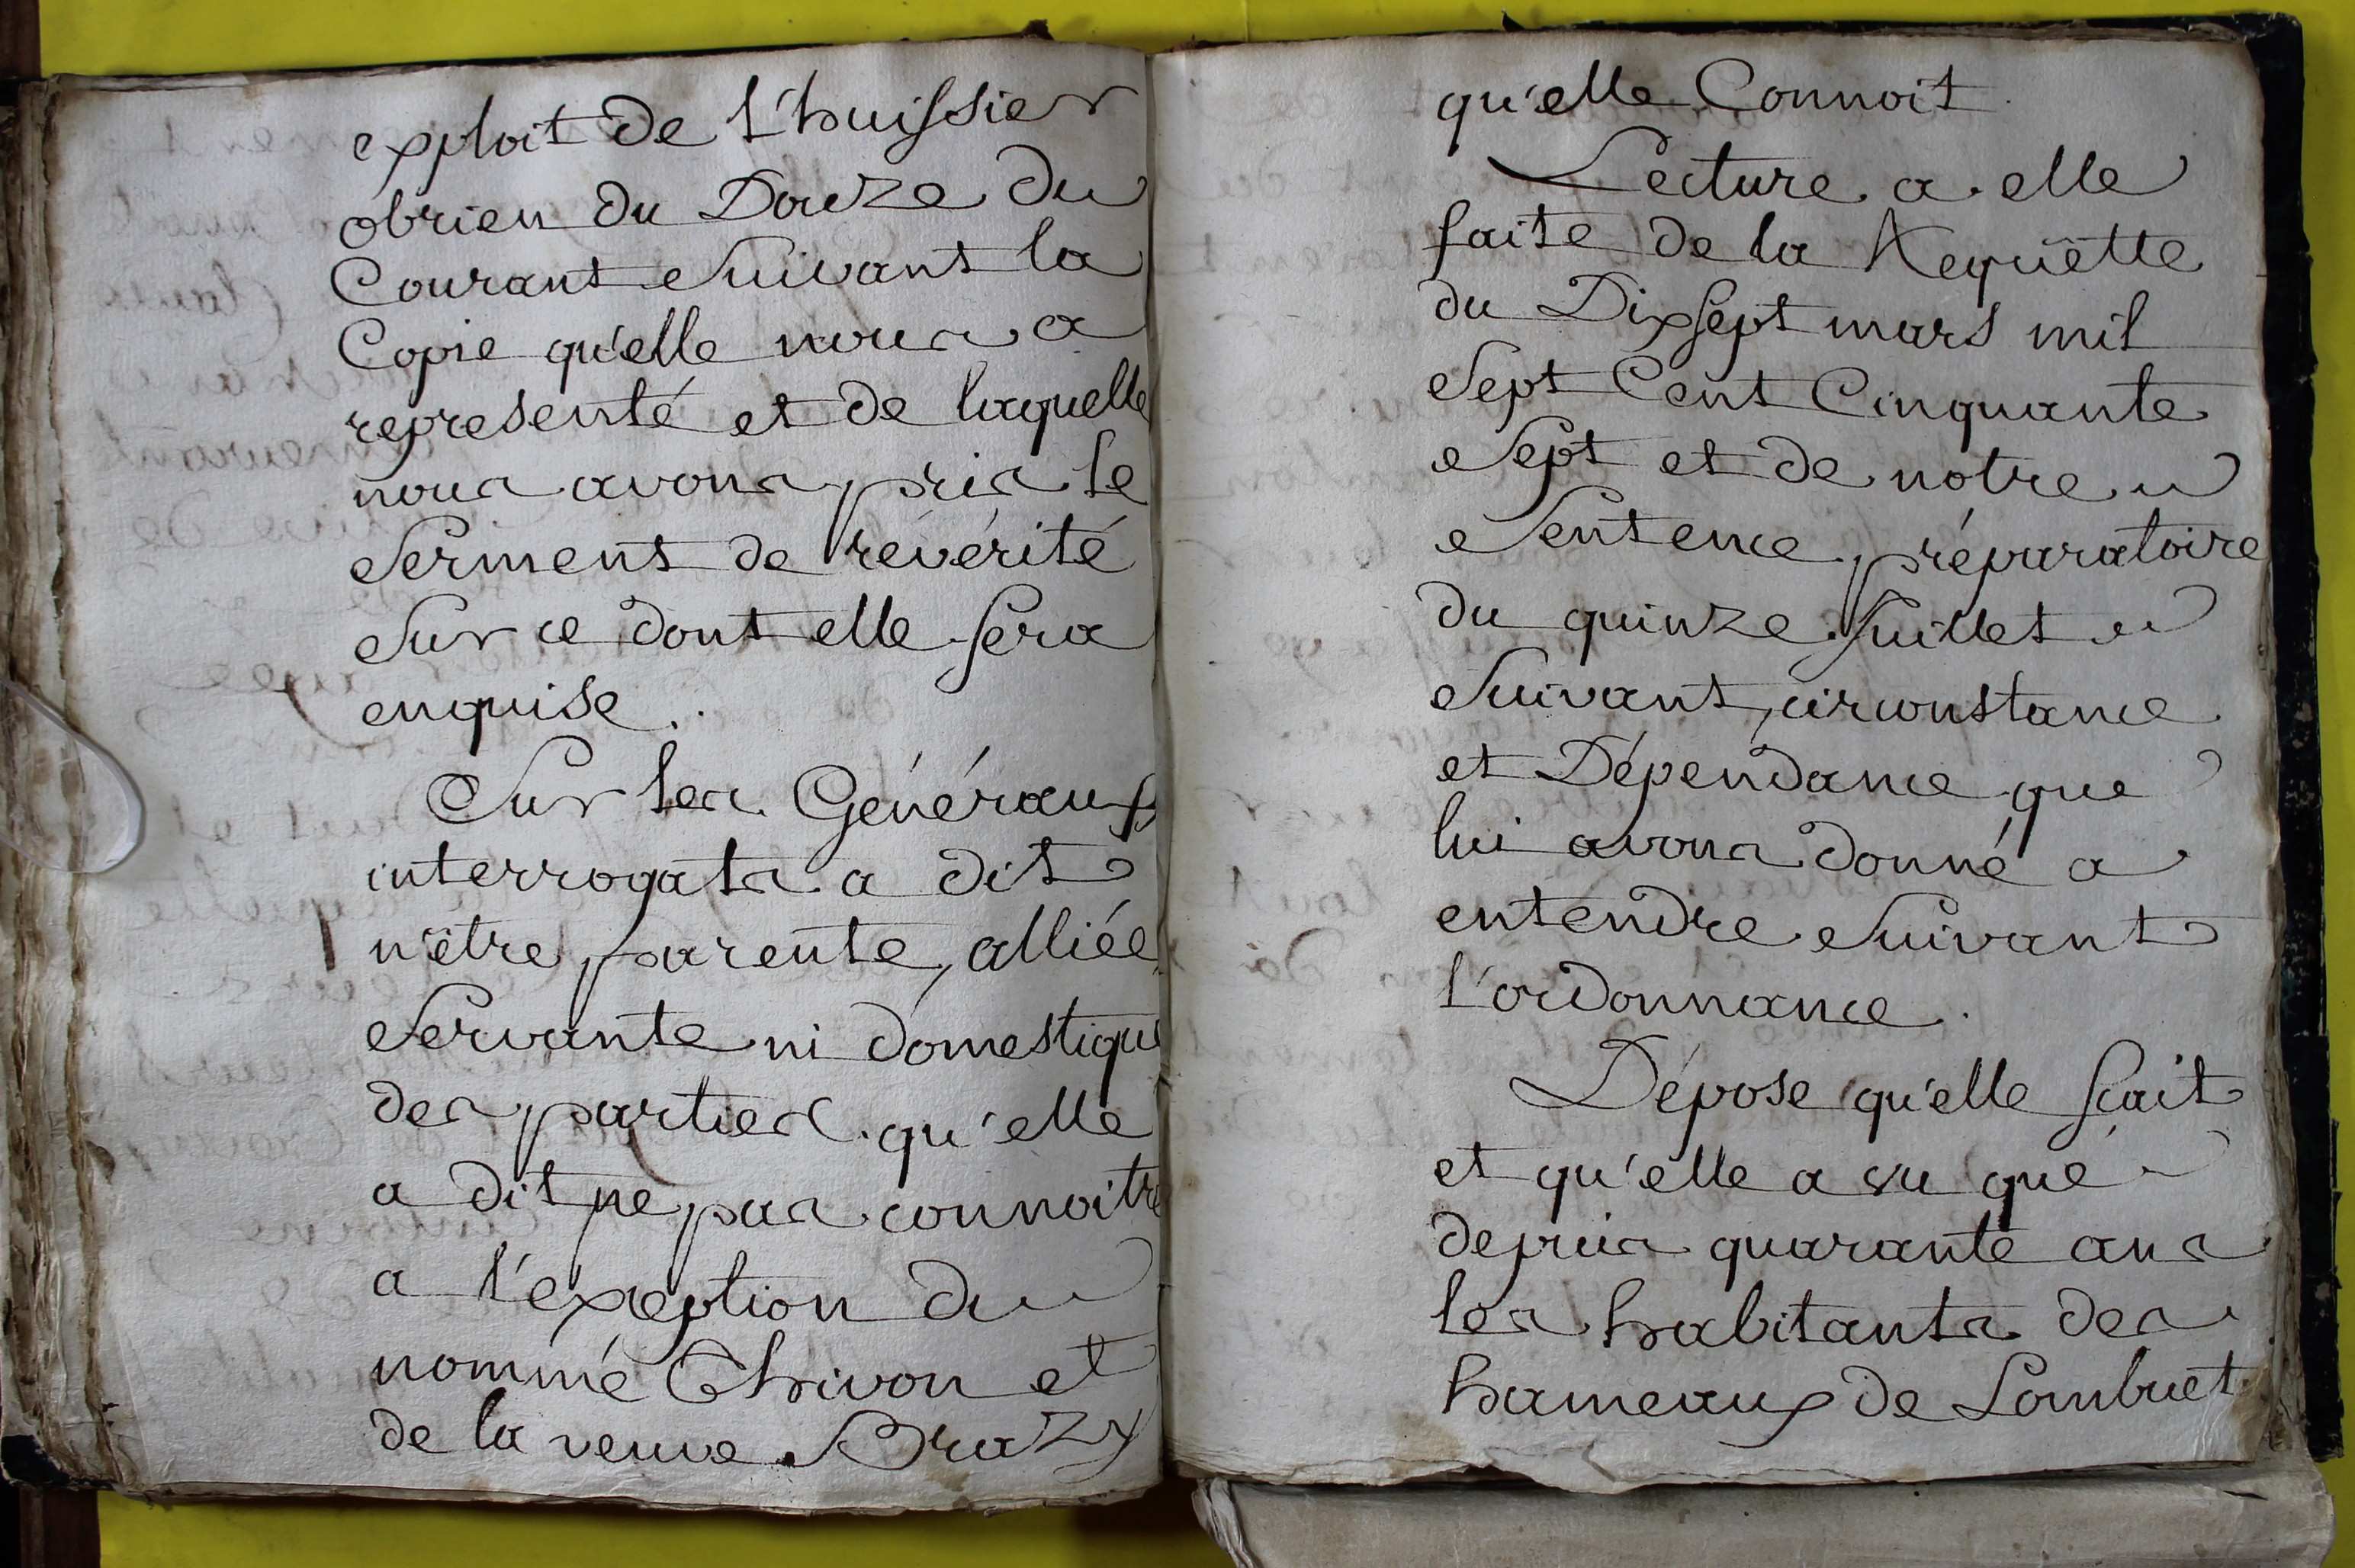 exploit de l'huissier
obrien du Douze du
Courant Suivant la
Copie qu'elle nous a
representé et de laquelle
nous avons pris le
Serment de révérité
Sur ce dont elle sera
enquise.
Sur les Généraux
interrogats a dit
n'être parente, alliée
Servante ni domestique
des parties qu'elle
a dit ne pas connoitre
a l'exception du
nommé Thivon et
de la veuve Brazy
qu'elle Connoit
Lecture a elle
faite de la Requëtte
du Dix sept mars mil
Sept Cent Cinquante
Sept et de notre
Sentence préparatoire
du quinze Juillet
Suivant, circonstance
et Dépendance que
lui avons donné a
entendre Suivant
l'ordonnance.
Dépose qu'elle sçait
et qu'elle a vu que
depuis quarante ans
les habitants des
hameaux de Lombuet